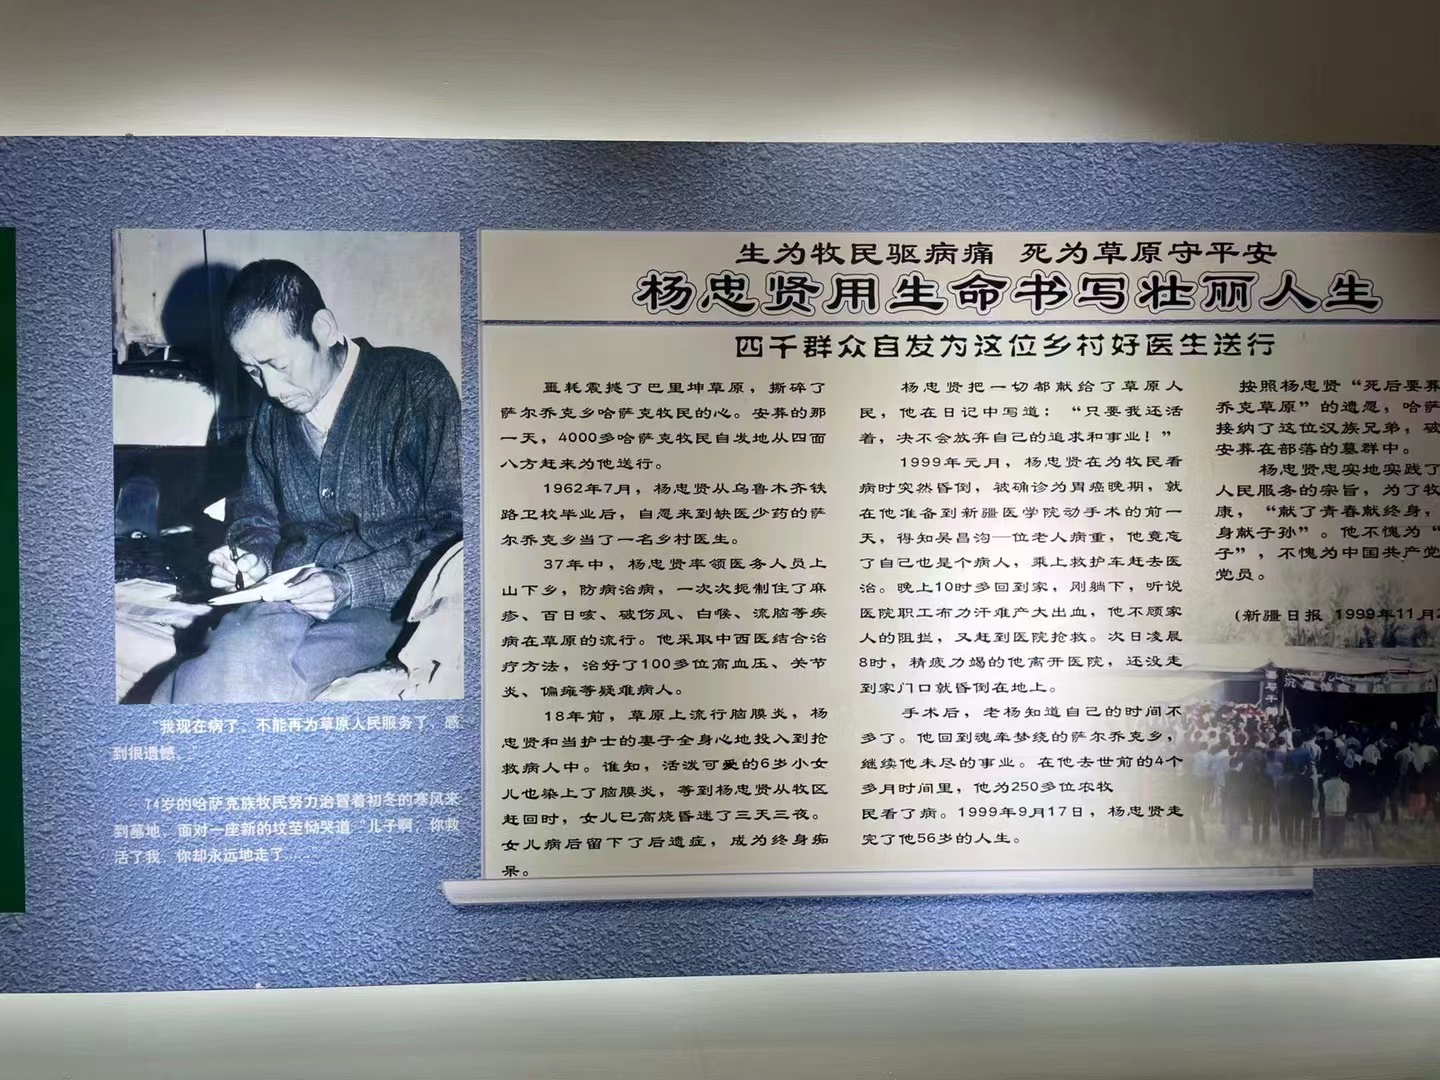 生为牧民驱病痛 死为草原守平安
杨忠贤用生命书写壮丽人生
四千群众自发为这位乡村好医生送行
噩耗震撼了巴里坤草原，撕碎了
萨尔乔克乡哈萨克牧民的心。安葬的那
一天，4000多哈萨克牧民自发地从四面
八方赶来为他送行。
1962年7月，杨忠贤从乌鲁木齐铁
路卫校毕业后，自愿来到缺医少药的萨
尔乔克乡当了一名乡村医生。
37年中，杨忠贤率领医务人员上
山下乡，防病治病，一次次扼制住了麻
疹、百日咳、破伤风、白喉、流脑等疾
病在草原的流行。他采取中西医结合治
疗方法，治好了100多位高血压、关节
炎、偏瘫等疑难病人。
18年前，草原上流行脑膜炎，杨
忠贤和当护士的妻子全身心地投入到抢
救病人中。谁知，活泼可爱的6岁小女
儿也染上了脑膜炎，等到杨忠贤从牧区
赶回时，女儿已高烧昏迷了三天三夜。
女儿病后留下了后遗症，成为终身痴
呆。
杨忠贤把一切都献给了草原人
民，他在日记中写道：“只要我还活
着，决不会放弃自己的追求和事业！”
1999年元月，杨忠贤在为牧民看
病时突然昏倒，被确诊为胃癌晚期，就
在他准备到新疆医学院动手术的前一
天，得知吴昌沟一位老人病重，他竟忘
了自己也是个病人，乘上救护车赶去医
治。晚上10时多回到家，刚躺下，听说
医院职工布力汗难产大出血，他不顾家
人的阻拦，又赶到医院抢救。次日凌晨
8时，精疲力竭的他离开医院，还没走
到家门口就昏倒在地上。
手术后，老杨知道自己的时间不
多了。他回到魂牵梦绕的萨尔乔克乡，
继续他未尽的事业。在他去世前的4个
多月时间里，他为250多位农牧
民看了病。1999年9月17日，杨忠贤走
完了他56岁的人生。
按照杨忠贤“死后要葬
乔克草原”的遗愿，哈萨
接纳了这位汉族兄弟，破
安葬在部落的墓群中。
杨忠贤忠实地实践了
人民服务的宗旨，为了牧
康，“献了青春献终身，
身献子孙”。他不愧为“
子”，不愧为中国共产党
党员。
（新疆日报 1999年11月2
“我现在病了，不能再为草原人民服务了，感
到很遗憾。”
74岁的哈萨克族牧民努力治冒着初冬的寒风来
到墓地，面对一座新的坟茔恸哭道“儿子啊，你救
活了我，你却永远地走了……”